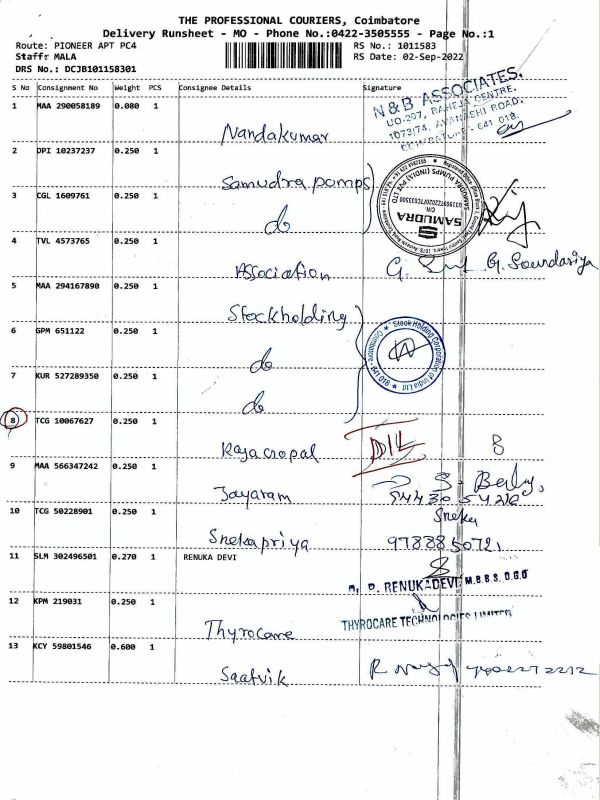 THE PROFESSIONAL COURIERS, Coimbatore
Delivery Runsheet - MO - Phone No.:0422-3505555 - Page No.:1
Route: PIONEER APT PC4 RS No.: 1011583
Staff: MALA RS Date: 02-Sep-2022
DRS No.: DCJB101158301
S No Consignment No Weight PCS Consignee Details Signature
1 MAA 290058189 0.080 1
Nandakumar
N&B ASSOCIATES.
UO-207, RAHEJA CENTRE,
1073/74, AVANASHI ROAD,
COIMBATORE - 641 018.
2 DPI 10237237 0.250 1
Samudra pumps
SAMUDRA PUMPS (INDIA) PVT LTD
SAMUDRA
3 CGL 1609761 0.250 1
do
4 TVL 4573765 0.250 1
Association G. G. Soundariya
5 MAA 294167890 0.250 1
Stockholding
Stock Holding Corporation of India Ltd
Coimbatore - 641 018
6 GPM 651122 0.250 1
do
7 KUR 527289350 0.250 1
do
8 TCG 10067627 0.250 1
Rajagopal DIL 8
9 MAA 566347242 0.250 1
Jayaram
10 TCG 50228901 0.250 1
Sneka
Snekapriya 9788850721
11 SLM 302496501 0.270 1 RENUKA DEVI
D. RENUKADEVI M.B.B.S. D.G.O
12 KPM 219031 0.250 1
Thyrocare
THYROCARE TECHNOLOGIES LIMITED
13 KCY 59801546 0.600 1
Saatvik